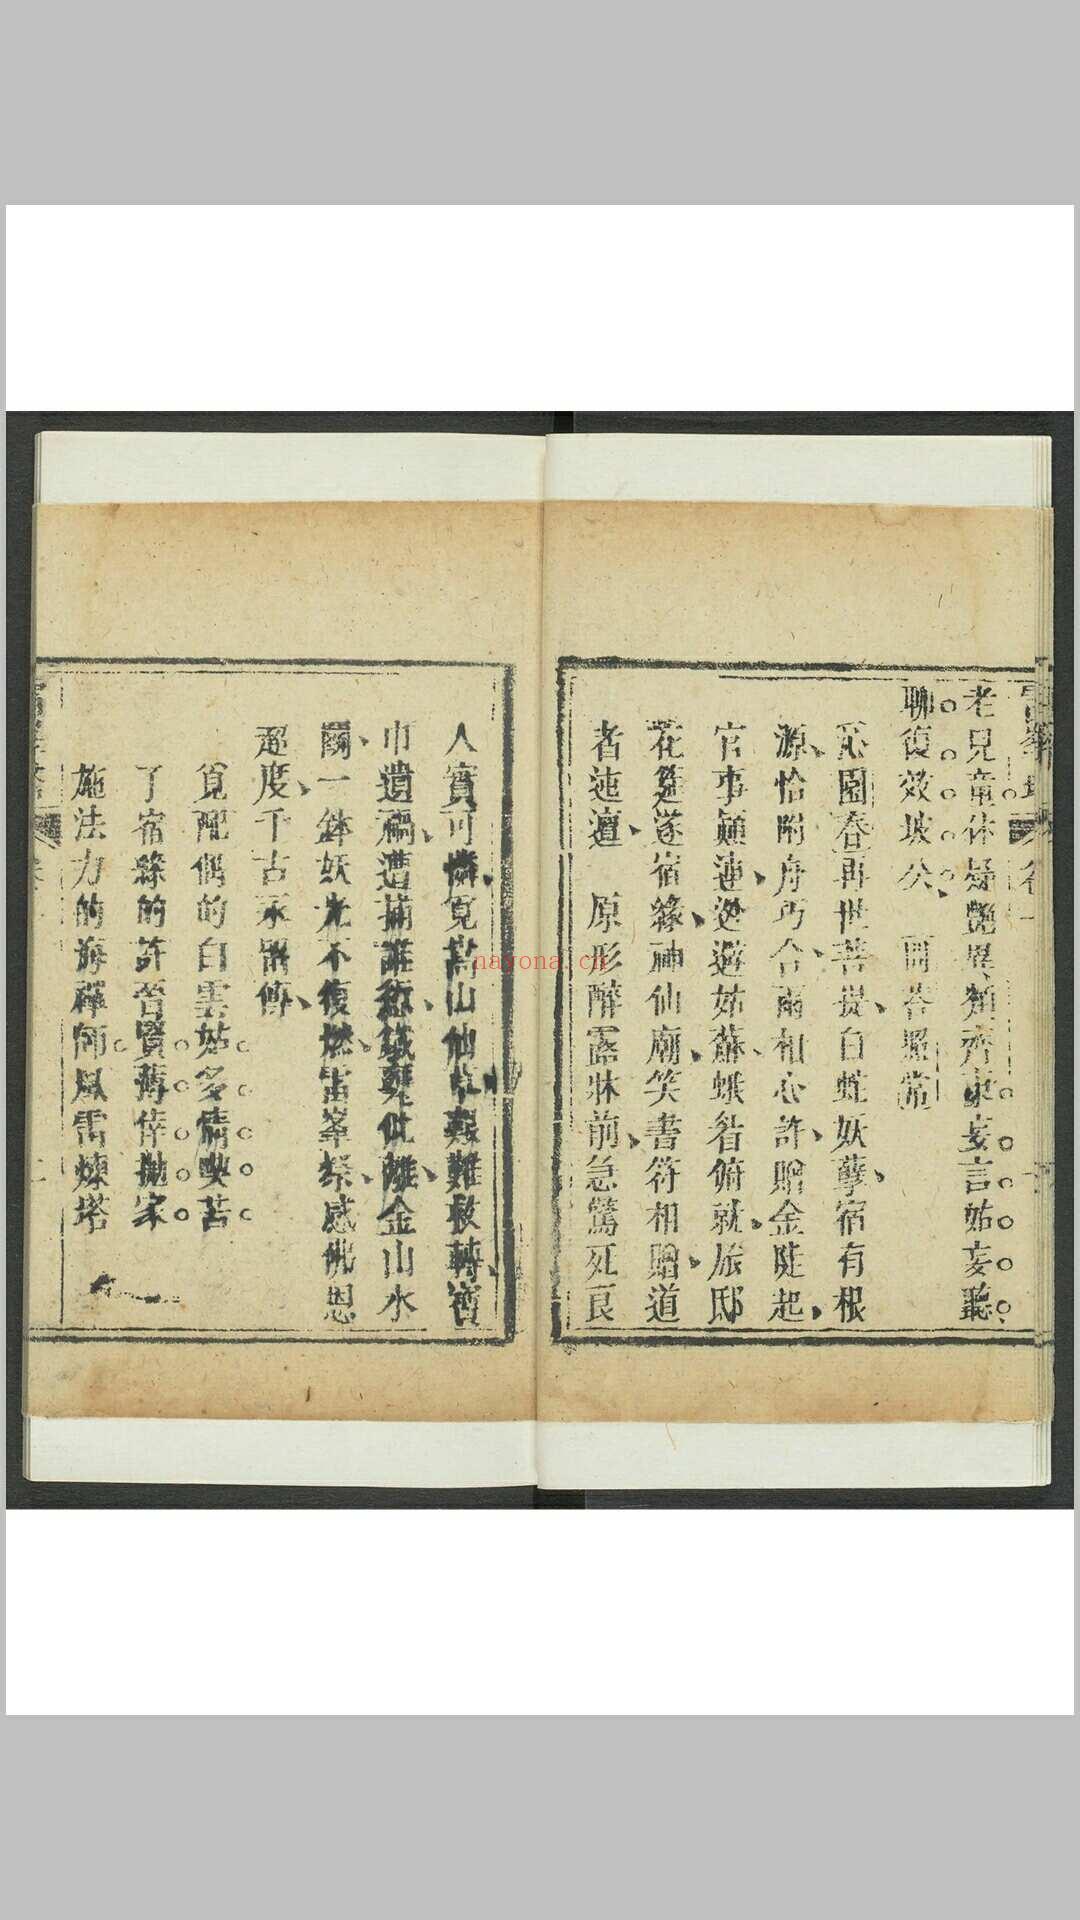 老兒童休疑艷異類齊東妄言姑妄聽
聊復效坡公　問答照常
沁園春再世菩提白蛇妖孽宿有根
源恰附舟巧合兩相心許贈金陡起
官事顛連遊姑蘇蛾眉俯就旅邸
花筵遂宿緣神仙廟笑書符相贈道
者迍邅　原形醉露牀前急驚死良
人實可憐覓嵩山仙草艱難救轉寶
巾遺禍遭捕離金山水
鬭一鉢妖光不復燃雷峯祭感佛恩
超度千古永留傳
覓配偶的白雲姑多情喫苦
了宿緣的許晉賢薄倖拋家
施法力的海禪師風雷煉塔
nayona.cn